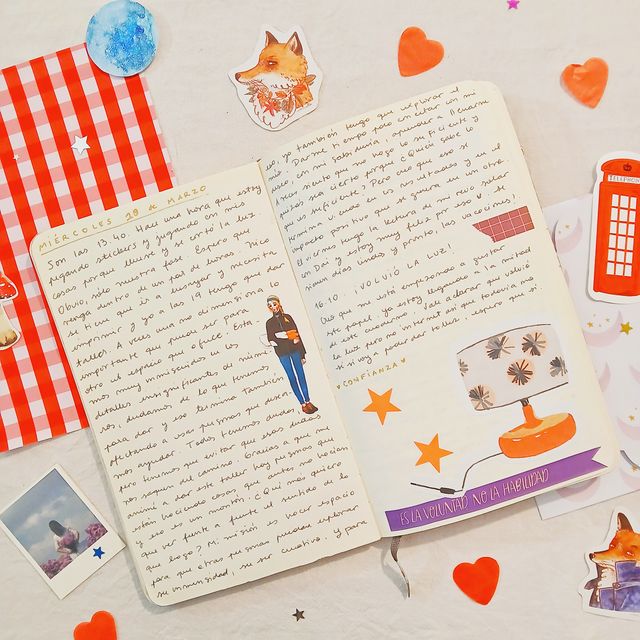 MIÉRCOLES 29 de MARZO
Son las 13.40. Hace una hora que estoy
pegando stickers y jugando con mis
cosas porque llueve y se cortó la luz.
Obvio, sólo nuestra fase. Espero que
venga dentro de un par de horas. Nico
se tiene que ir a ensayar y necesita
imprimir y yo a las 19 tengo que dar
taller. A veces una no dimensiona lo
importante que puede ser para
otro el espacio que ofrece. Estamos
muy inmiscuidos en los
detalles insignificantes de nosotros
mismos, dudamos de lo que tenemos
para dar y eso termina también
afectando a esas personas que deseamos
ayudar. Todos tenemos dudas,
pero tenemos que evitar que esas dudas
nos saquen del camino. Gracias a que me
animé a dar este taller hay personas que
están haciendo cosas que antes no hacían
y eso es un montón. ¿Qué más quiero
que ver frente a frente el sentido de lo
que hago? Mi misión es hacer espacio
para que otras personas puedan explorar
su inmensidad, su ser creativo. Y para
eso, yo también tengo que explorar el
mío. Darme tiempo para conectar con mi
deseo, con mi sabiduría, aprender a llevarme
cuando siento que no hago lo suficiente y
quizás sea cierto, porque ¿Quién sabe lo
que es suficiente? Pero creo que eso se
termina viendo en los resultados y en el
impacto positivo que se genera en un otro.
El viernes tengo la lectura de mi revo solar
con Dai y estoy muy feliz por eso. Y tengo
unos días lindos y pronto, ¡las vacaciones!
16.10. ¡VOLVIÓ LA LUZ!
Creo que me está empezando a gustar
este papel. Ya estoy llegando a la mitad
de este cuaderno. Sale aclarar que volvió
la luz pero no internet así que todavía no
sé si voy a poder dar taller. ¡Espero que sí!
CONFIANZA
ES LA VOLUNTAD NO LA HABILIDAD
TELEPHONE